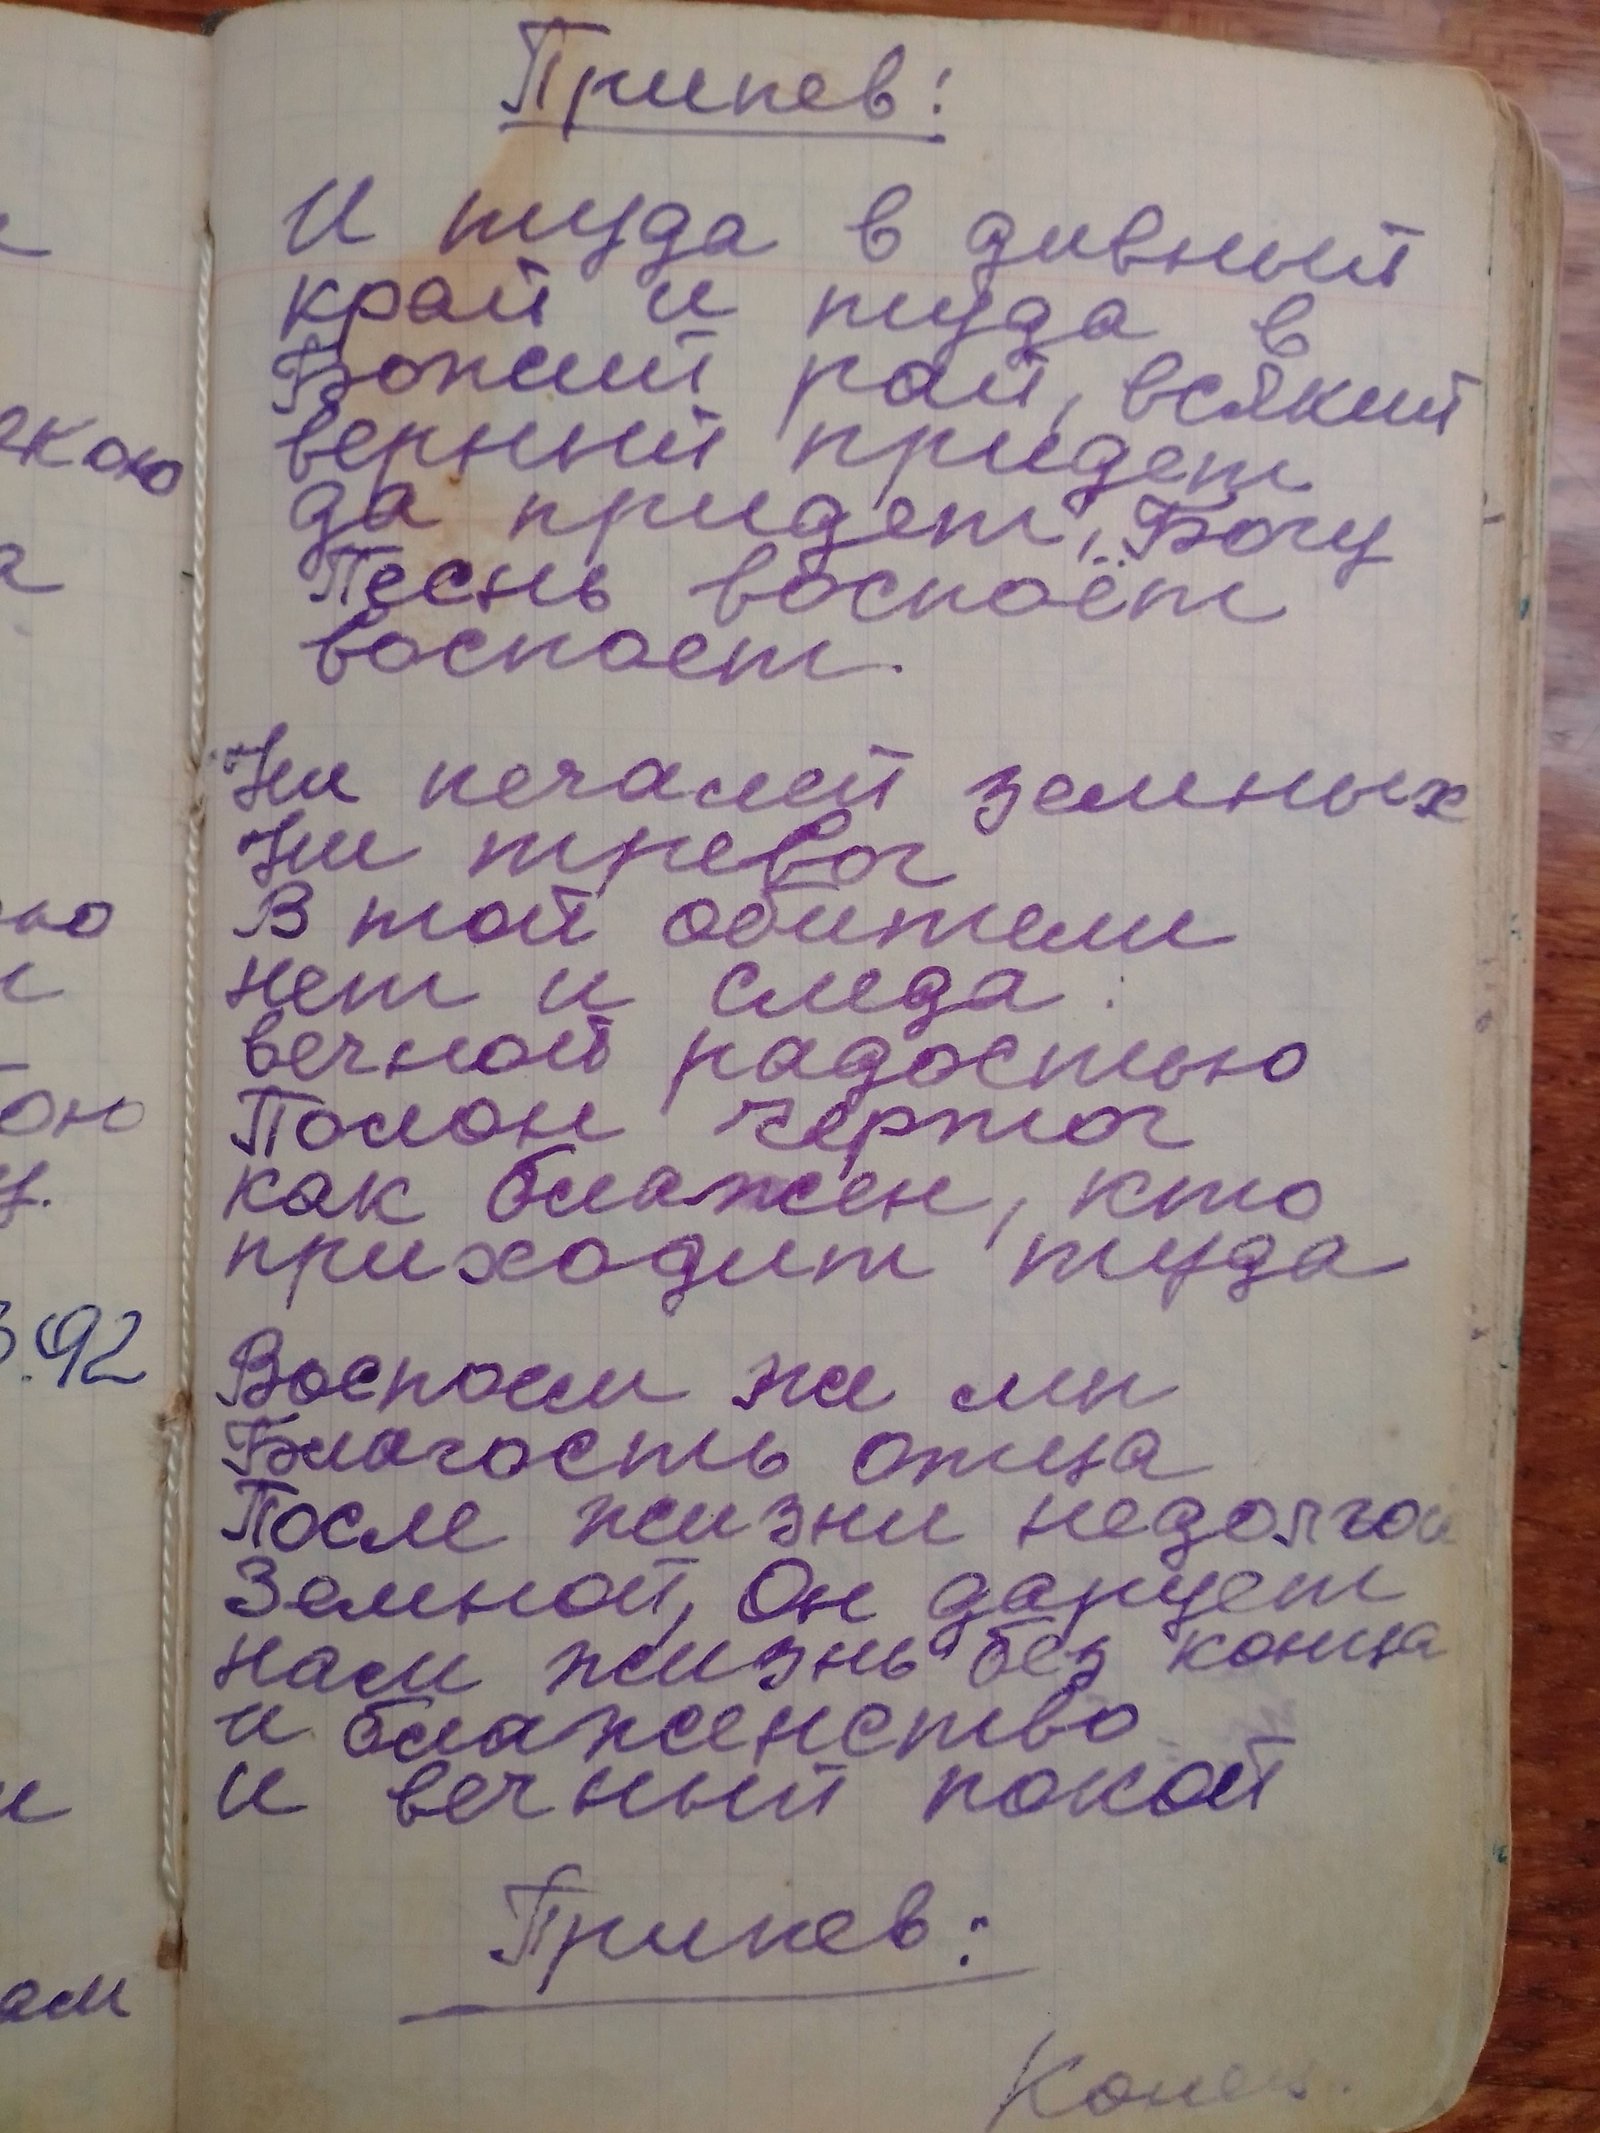 Припев:
И туда в дивный
край и туда в
Божий рай, всякий
верный придет
да придет, Богу
Песнь воспоёт
воспоет.
Ни печалей земных
Ни тревог
В той обители
нет и следа.
вечной радостью
Полон чертог
как блажен, кто
приходит туда
Воспоем же мы
Благость отца
После жизни недолгой
Земной, Он дарует
нам жизнь без конца
и блаженство
и вечный покой
Припев:
Конец.